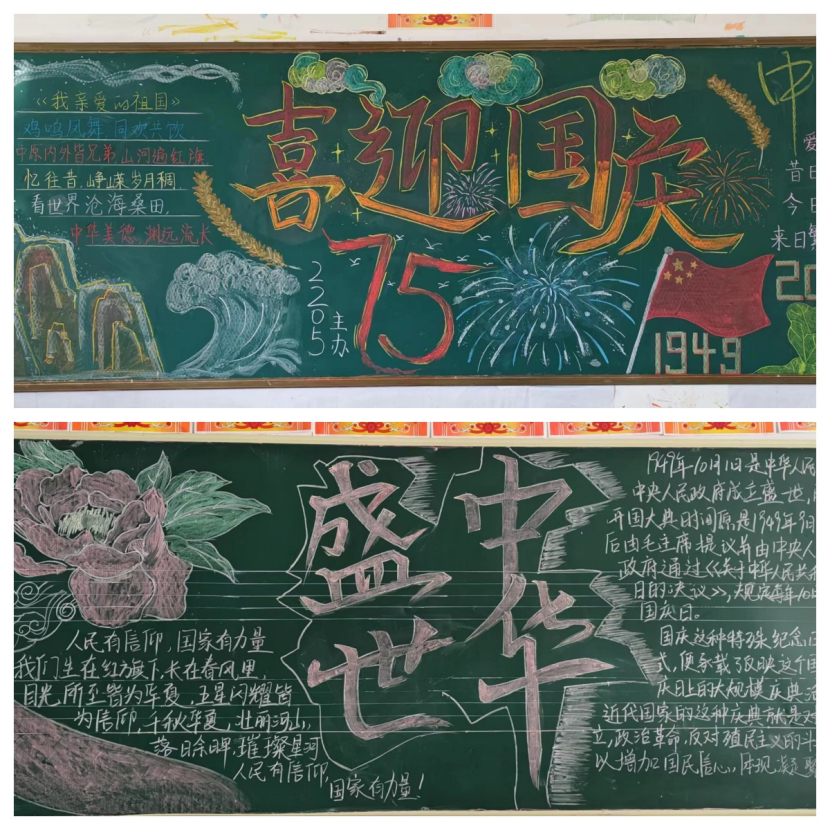 《我亲爱的祖国》
鸡鸣凤舞 同欢共饮
中原内外皆兄弟,山河遍红旗
忆往昔,峥嵘岁月稠,
看世界沧海桑田,
中华美德,渊远流长
喜迎国庆
75
2205主办
1949
中
爱
昔日
今日
来日繁
20
人民有信仰,国家有力量
我们生在红旗下,长在春风里,
目光所至皆为华夏,五星闪耀皆
为信仰,千秋华夏,壮丽河山,
落日余晖,璀璨星河
人民有信仰,
国家有力量!
盛世
中华
1949年10月1日是中华人民
中央人民政府成立盛世,
开国大典时间原是1949年9月
后由毛主席提议并由中央人
政府通过《关于中华人民共和
日的决议》,大规定每年10月
国庆日。
国庆这种特殊纪念
式,便承载了反映这个
庆日上的大规模庆典活
近代国家的这种庆典就是对
立,政治革命,反对殖民主义的斗
以增加国民信心,体现凝聚